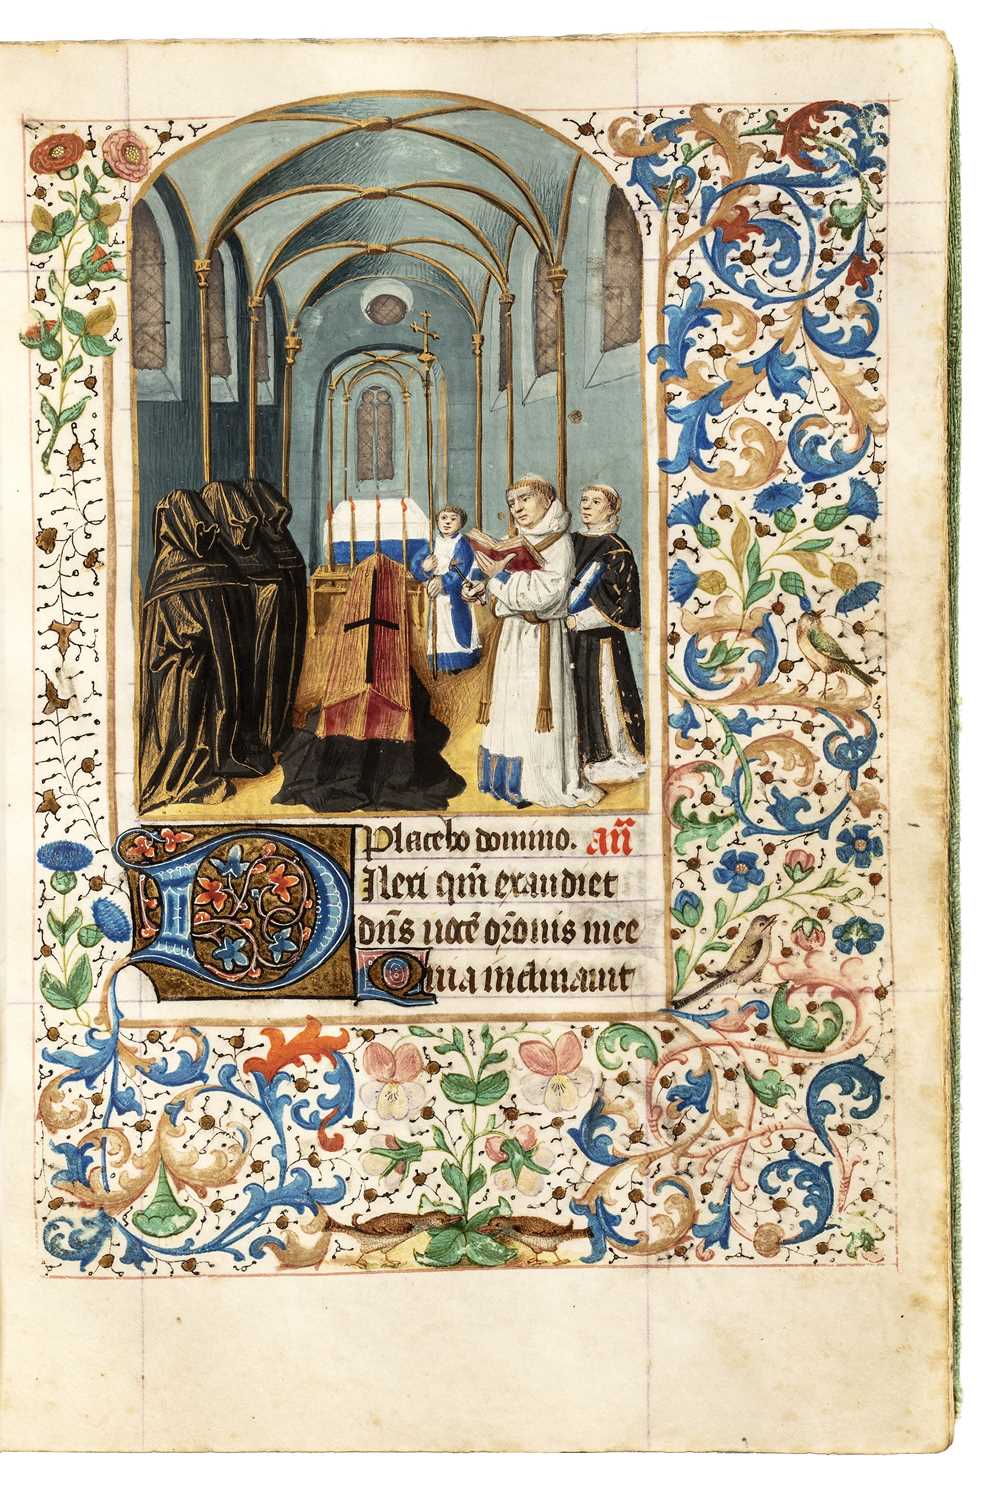 Placebo domino. an̄
DIlexi qm̄ exaudiet
dn̄s uocē or̄onis mee
Quia inclinauit